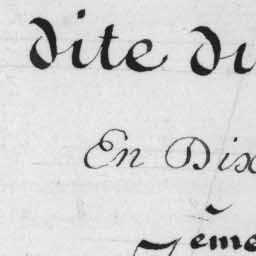 dite du
En Dix
7ème